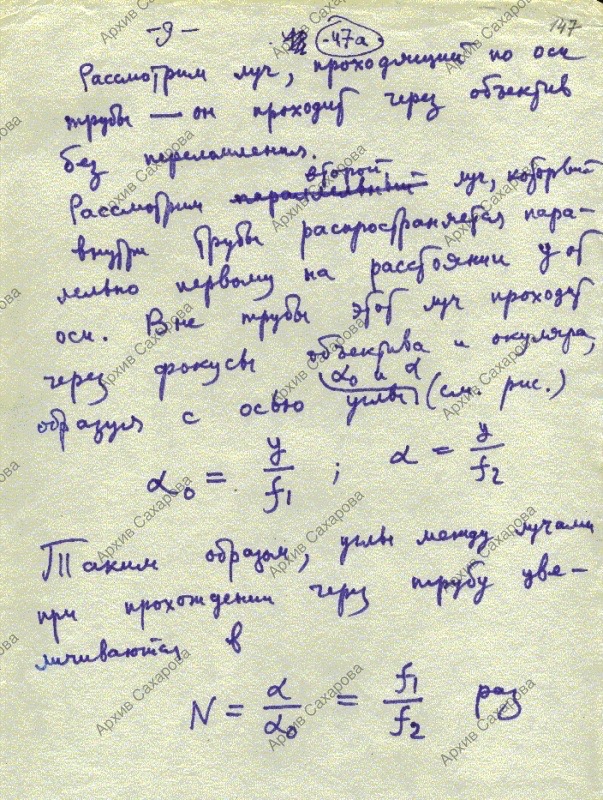 -9- -47а- 147
Рассмотрим луч, проходящий по оси
трубы — он проходит через объектив
без преломления.
второй
Рассмотрим параллельный луч, который
внутри трубы распространяется пара-
лельно первому на расстоянии y от
оси. Вне трубы этот луч проходит
через фокусы объектива и окуляра,
α₀ и α
образуя с осью углы (см. рис.)
α₀ = y/f₁ ; α = y/f₂
Таким образом, углы между лучами
при прохождении через трубу уве-
личиваются в
N = α/α₀ = f₁/f₂ раз
Архив Сахарова